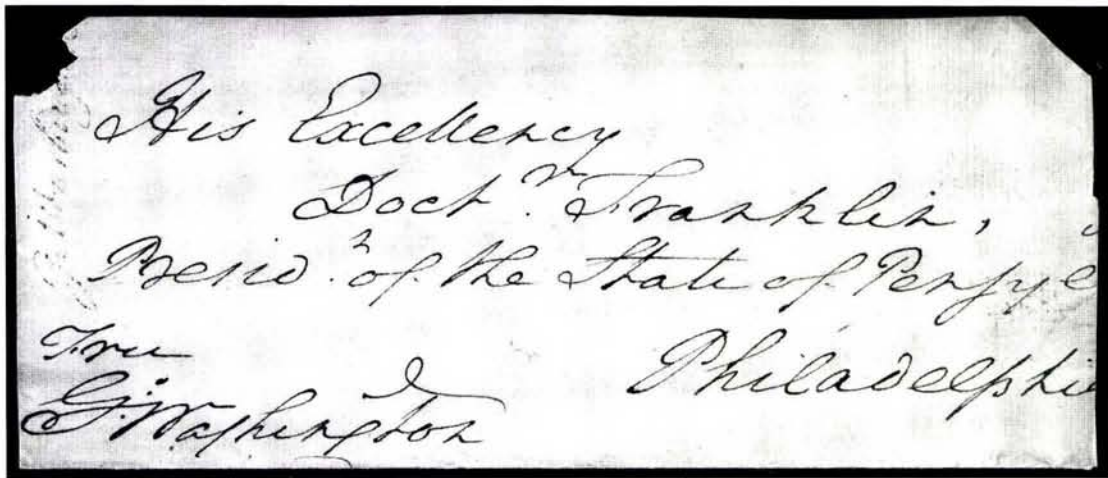 His Excellency
Doctr. Franklin,
Presidt. of the State of Pensyl
Free
Philadelphia
G:Washington